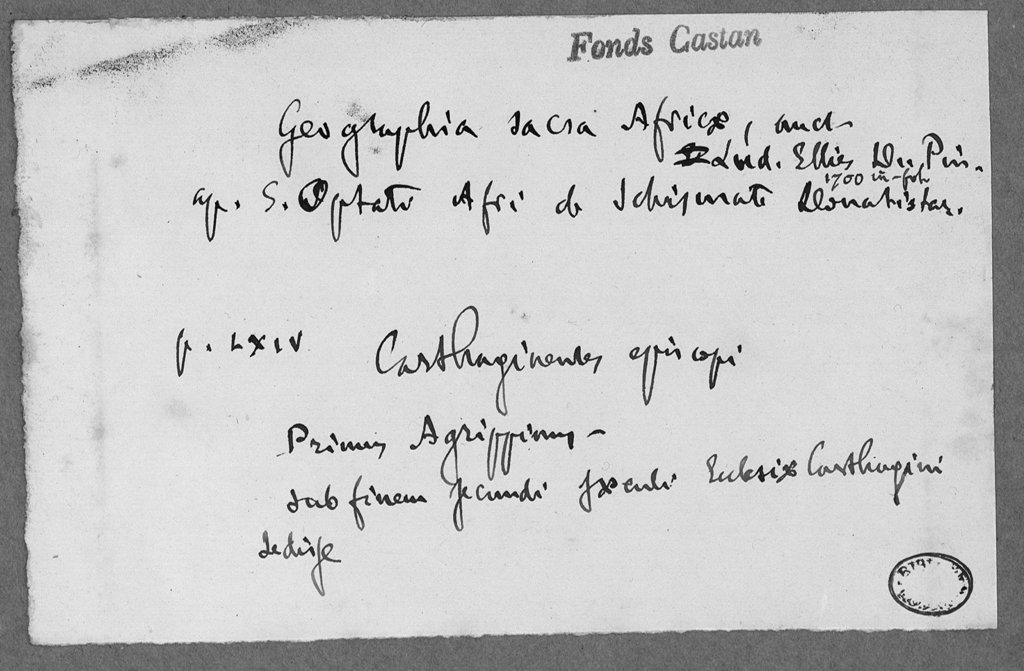 Fonds Castan
Geographia sacra Africæ, auct.
Lud. Ellies Du Pin.
1700 in-fol.
ap. S. Optati Afri de Schismate Donatistar.
p. LXIV Carthaginenses episcopi
Primus Agrippinus –
sub finem secundi sæculi Eclesiæ Carthagini
sedisse